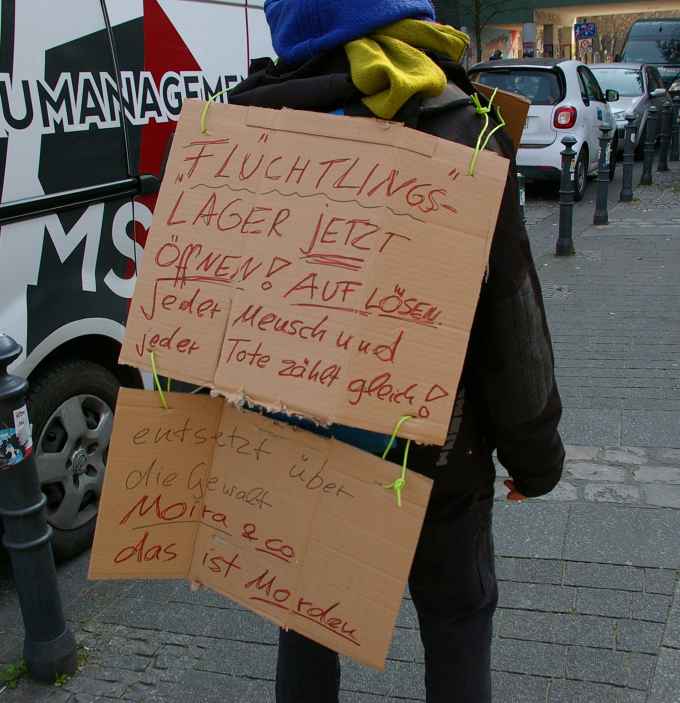 UMANAGEMEN
MS
„FLÜCHTLINGS"-
LAGER JETZT
ÖFFNEN! AUFLÖSEN
Jeder Mensch und
jeder Tote zählt gleich!
entsetzt über
die Gewalt
Moira & co
das ist Morden